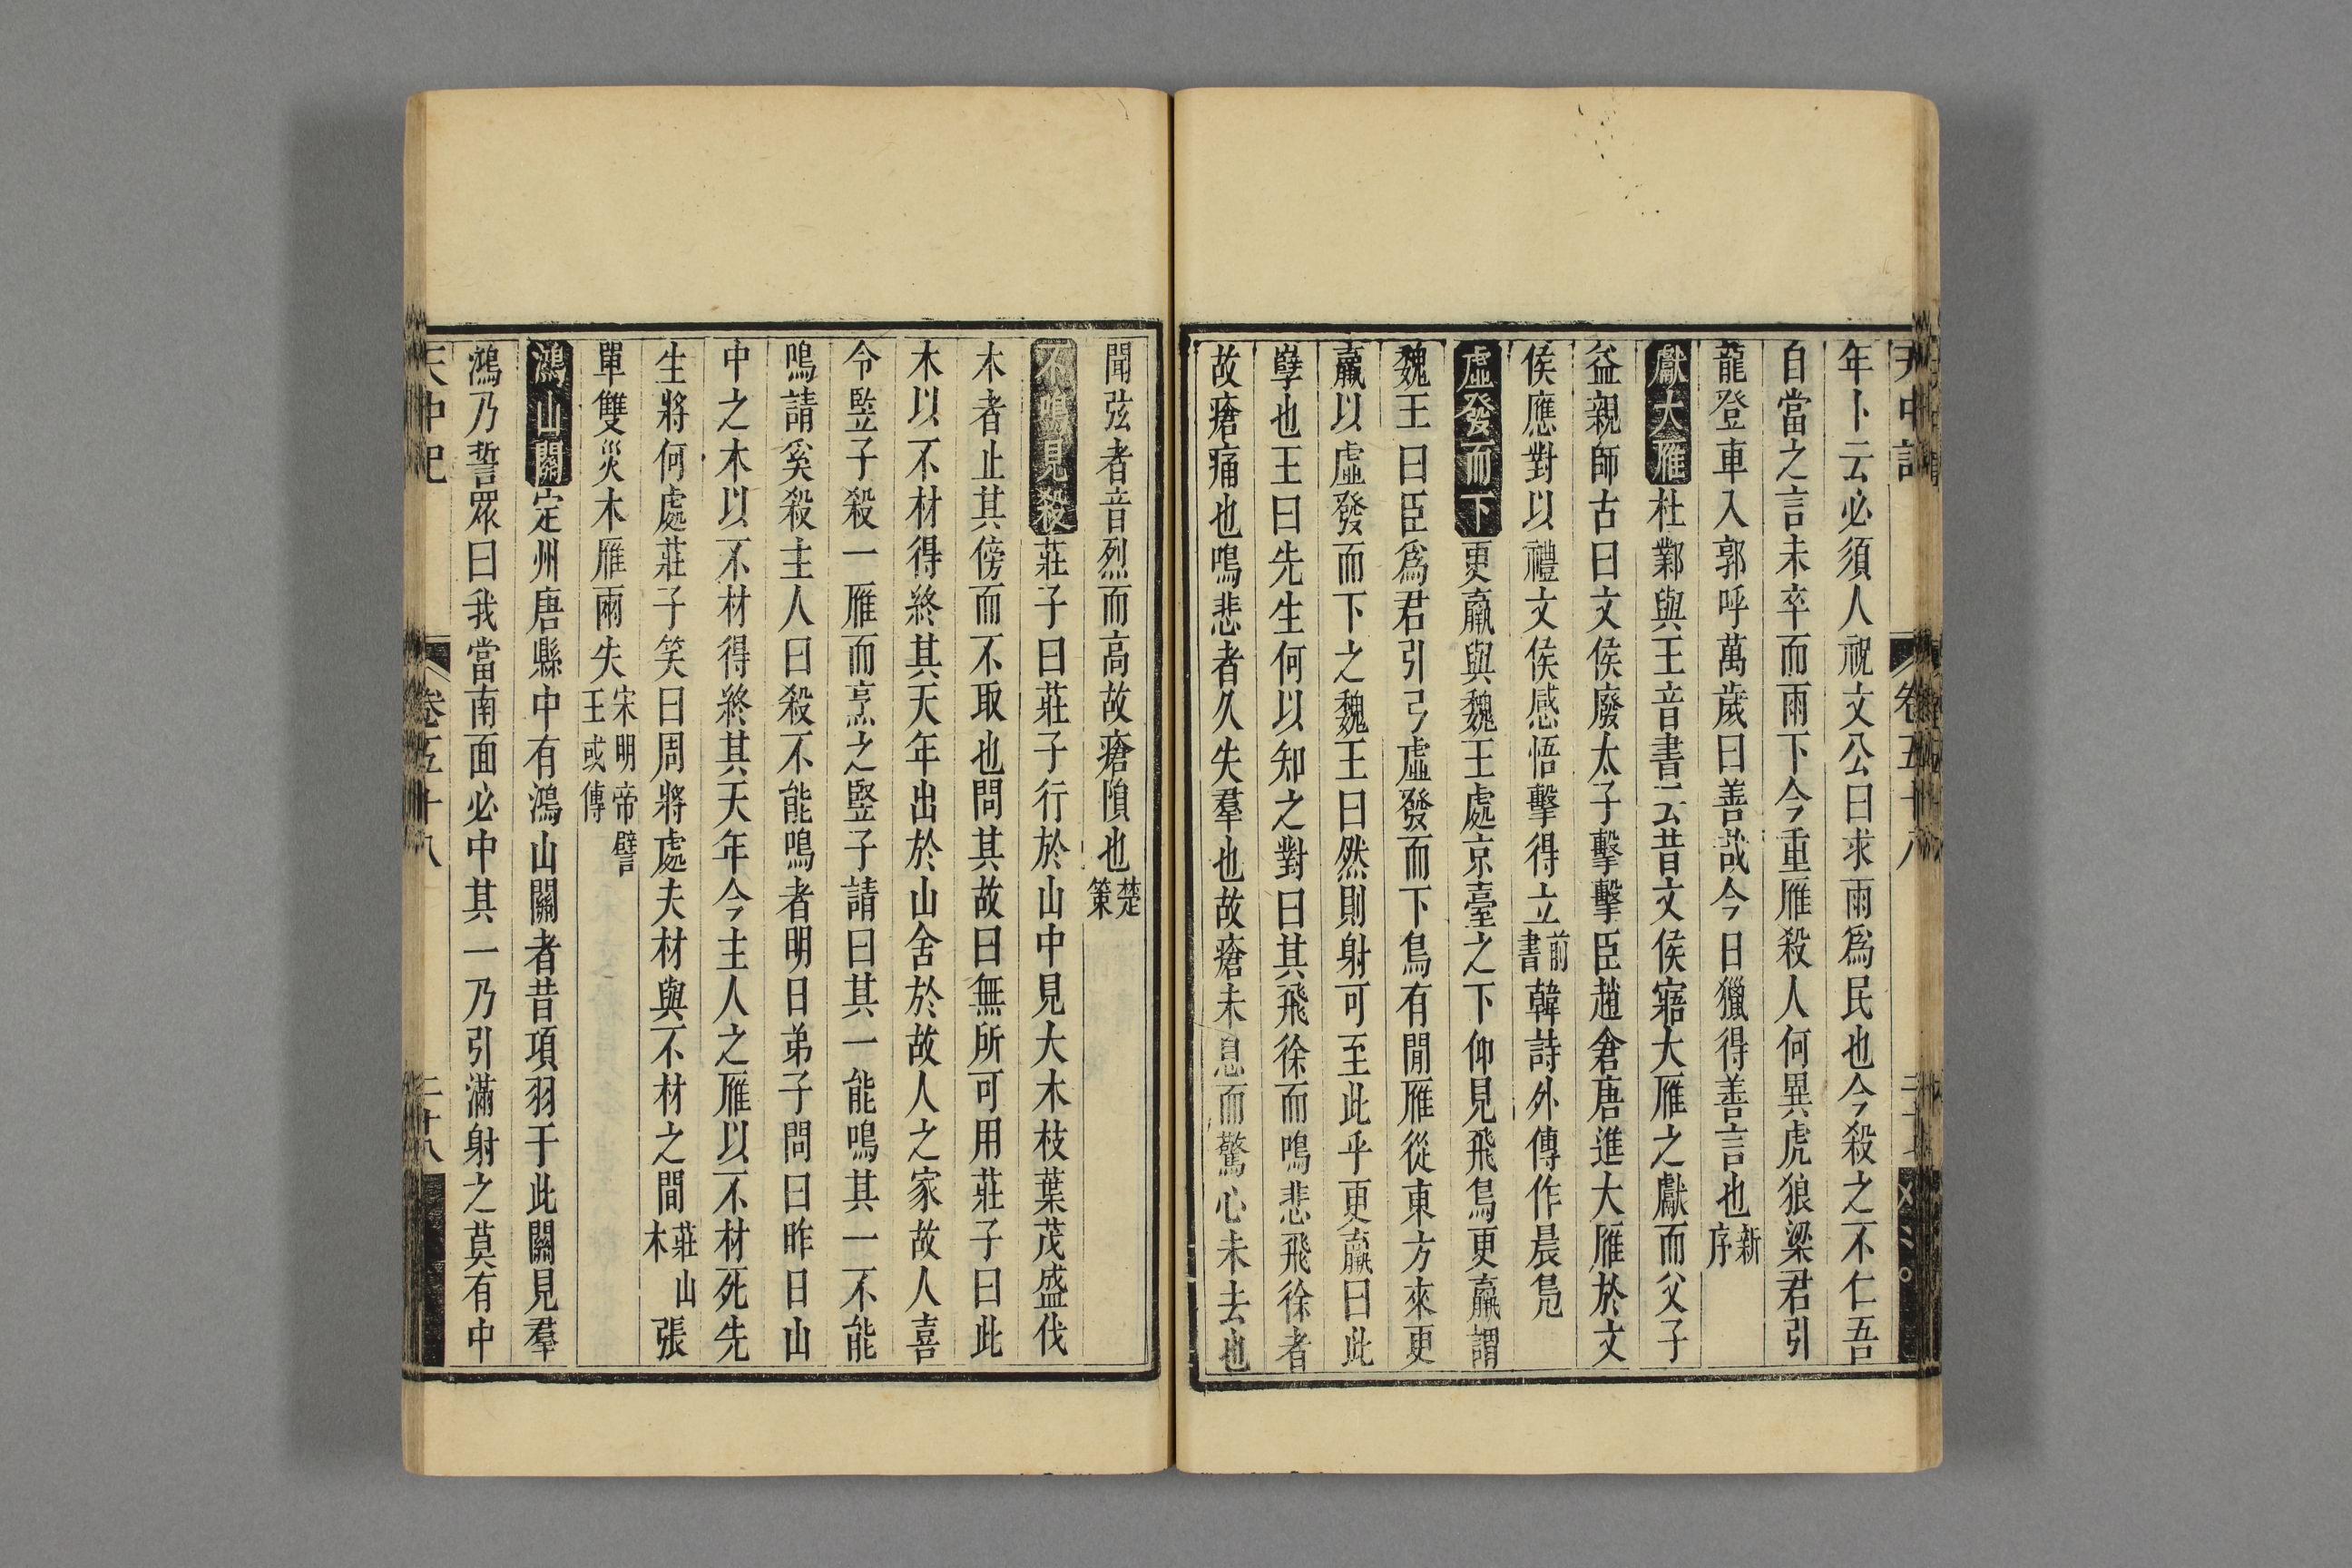 年卜云必須人祝文公曰求雨爲民也今殺之不仁吾
自當之言未卒而雨下今重雁殺人何異虎狼梁君引
龍登車入郭呼萬歲曰善哉今日獵得善言也新序
獻大雁杜鄴與王音書云昔文侯寤大雁之獻而父子
益親師古曰文侯廢太子擊擊臣趙倉唐進大雁於文
侯應對以禮文侯感悟擊得立前書韓詩外傳作晨鳧
虛發而下更羸與魏王處京臺之下仰見飛鳥更羸謂
魏王曰臣爲君引弓虛發而下鳥有間雁從東方來更
羸以虛發而下之魏王曰然則射可至此乎更羸曰此
孽也王曰先生何以知之對曰其飛徐而鳴悲飛徐者
故瘡痛也鳴悲者久失羣也故瘡未息而驚心未去也
聞弦者音烈而高故瘡隕也楚策
不鳴見殺莊子曰莊子行於山中見大木枝葉茂盛伐
木者止其傍而不取也問其故曰無所可用莊子曰此
木以不材得終其天年出於山舍於故人之家故人喜
令豎子殺一雁而烹之豎子請曰其一能鳴其一不能
鳴請奚殺主人曰殺不能鳴者明日弟子問曰昨日山
中之木以不材得終其天年今主人之雁以不材死先
生將何處莊子笑曰周將處夫材與不材之間莊山木張
單雙災木雁兩失宋明帝譬王或傳
鴻山關定州唐縣中有鴻山關者昔項羽于此關見羣
鴻乃誓眾曰我當南面必中其一乃引滿射之莫有中
天中記 卷五十八 二十八